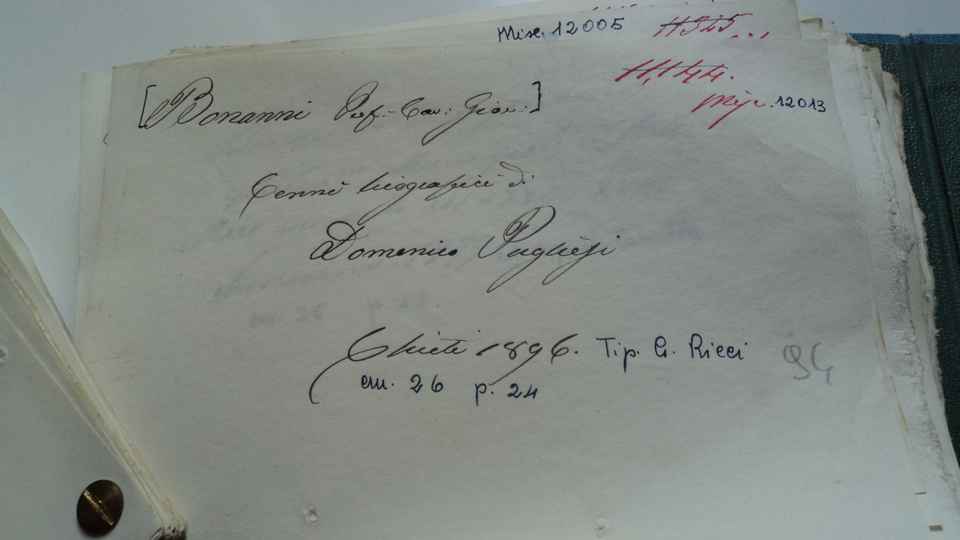 Misc. 12005
Misc. 12013
[Bonanni Prof. Cav. Giov.]
Cenni biografici di
Domenico Pugliesi
Chieti 1896. Tip. G. Ricci
cm. 26 p. 24
94